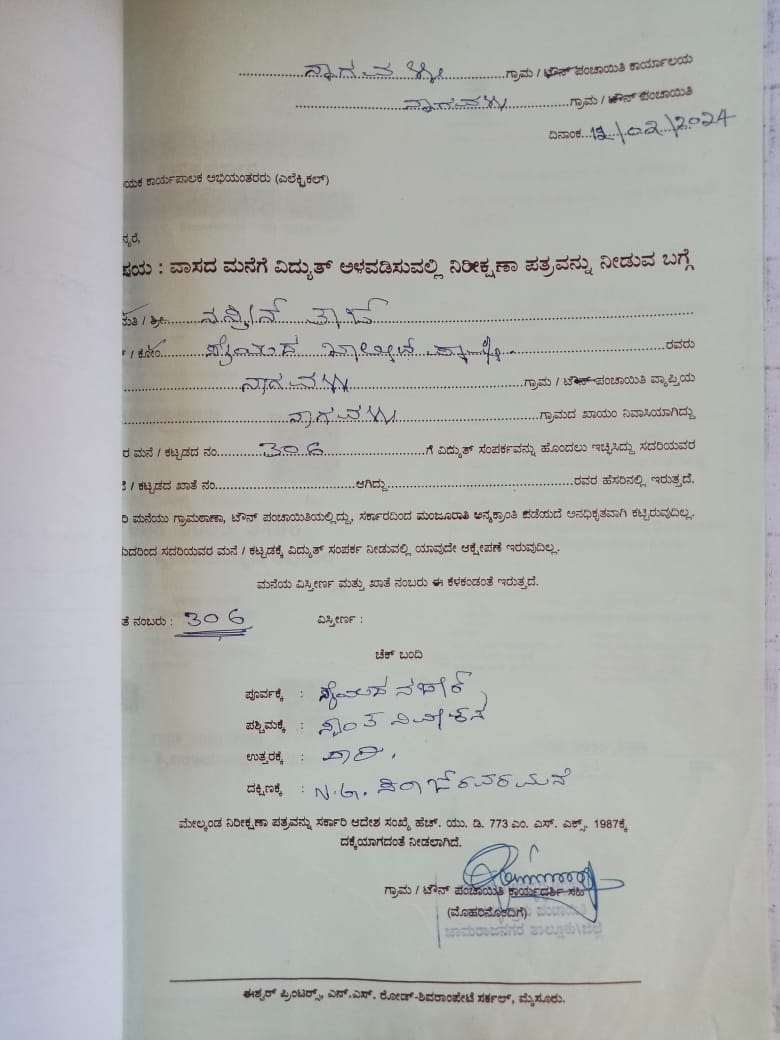 ನಾಗವಳ್ಳಿ ಗ್ರಾಮ / ಟೌನ್ ಪಂಚಾಯಿತಿ ಕಾರ್ಯಾಲಯ
ನಾಗವಳ್ಳಿ ಗ್ರಾಮ / ಟೌನ್ ಪಂಚಾಯಿತಿ
ದಿನಾಂಕ...12/02/2024
ಯಕ ಕಾರ್ಯಪಾಲಕ ಅಭಿಯಂತರರು (ಎಲೆಕ್ಟ್ರಿಕಲ್)
ನ್ಯರೆ,
ಷಯ : ವಾಸದ ಮನೆಗೆ ವಿದ್ಯುತ್ ಅಳವಡಿಸುವಲ್ಲಿ ನಿರೀಕ್ಷಣಾ ಪತ್ರವನ್ನು ನೀಡುವ ಬಗ್ಗೆ
ಮತಿ / ಶ್ರೀ ತಾಜ್
/ ಕೋಂ ಸೈಯದ್ ರವರು
ನಾಗವಳ್ಳಿ ಗ್ರಾಮ / ಟೌನ್ ಪಂಚಾಯಿತಿ ವ್ಯಾಪ್ತಿಯ
ನಾಗವಳ್ಳಿ ಗ್ರಾಮದ ಖಾಯಂ ನಿವಾಸಿಯಾಗಿದ್ದು
ರ ಮನೆ / ಕಟ್ಟಡದ ನಂ. 306 ಗೆ ವಿದ್ಯುತ್ ಸಂಪರ್ಕವನ್ನು ಹೊಂದಲು ಇಚ್ಛಿಸಿದ್ದು ಸದರಿಯವರ
/ ಕಟ್ಟಡದ ಖಾತೆ ನಂ. ಆಗಿದ್ದು ರವರ ಹೆಸರಿನಲ್ಲಿ ಇರುತ್ತದೆ.
ರಿ ಮನೆಯು ಗ್ರಾಮಠಾಣಾ, ಟೌನ್ ಪಂಚಾಯಿತಿಯಲ್ಲಿದ್ದು, ಸರ್ಕಾರದಿಂದ ಮಂಜೂರಾತಿ ಅನ್ಯಕ್ರಾಂತಿ ಪಡೆಯದೆ ಅನಧಿಕೃತವಾಗಿ ಕಟ್ಟಿರುವುದಿಲ್ಲ.
ುದರಿಂದ ಸದರಿಯವರ ಮನೆ / ಕಟ್ಟಡಕ್ಕೆ ವಿದ್ಯುತ್ ಸಂಪರ್ಕ ನೀಡುವಲ್ಲಿ ಯಾವುದೇ ಆಕ್ಷೇಪಣೆ ಇರುವುದಿಲ್ಲ.
ಮನೆಯ ವಿಸ್ತೀರ್ಣ ಮತ್ತು ಖಾತೆ ನಂಬರು ಈ ಕೆಳಕಂಡಂತೆ ಇರುತ್ತದೆ.
ತೆ ನಂಬರು : 306 ವಿಸ್ತೀರ್ಣ :
ಚೆಕ್ ಬಂದಿ
ಪೂರ್ವಕ್ಕೆ :
ಪಶ್ಚಿಮಕ್ಕೆ : ಸ್ವಂತ ನಿವೇಶನ
ಉತ್ತರಕ್ಕೆ : ದಾರಿ.
ದಕ್ಷಿಣಕ್ಕೆ : N.G. ಮನೆ
ಮೇಲ್ಕಂಡ ನಿರೀಕ್ಷಣಾ ಪತ್ರವನ್ನು ಸರ್ಕಾರಿ ಆದೇಶ ಸಂಖ್ಯೆ ಹೆಚ್. ಯು. ಡಿ. 773 ಎಂ. ಎಸ್. ಎಕ್ಸ್. 1987ಕ್ಕೆ
ದಕ್ಕೆಯಾಗದಂತೆ ನೀಡಲಾಗಿದೆ.
ಗ್ರಾಮ / ಟೌನ್ ಪಂಚಾಯಿತಿ ಕಾರ್ಯದರ್ಶಿ ಸಹಿ
(ಮೊಹರಿನೊಂದಿಗೆ) ಪಂಚಾಯಿತಿ
ಚಾಮರಾಜನಗರ ತಾಲ್ಲೂಕು\ಜಿಲ್ಲೆ
ಈಶ್ವರ್ ಪ್ರಿಂಟರ್ಸ್, ಎನ್.ಎಸ್. ರೋಡ್-ಶಿವರಾಂಪೇಟೆ ಸರ್ಕಲ್, ಮೈಸೂರು.